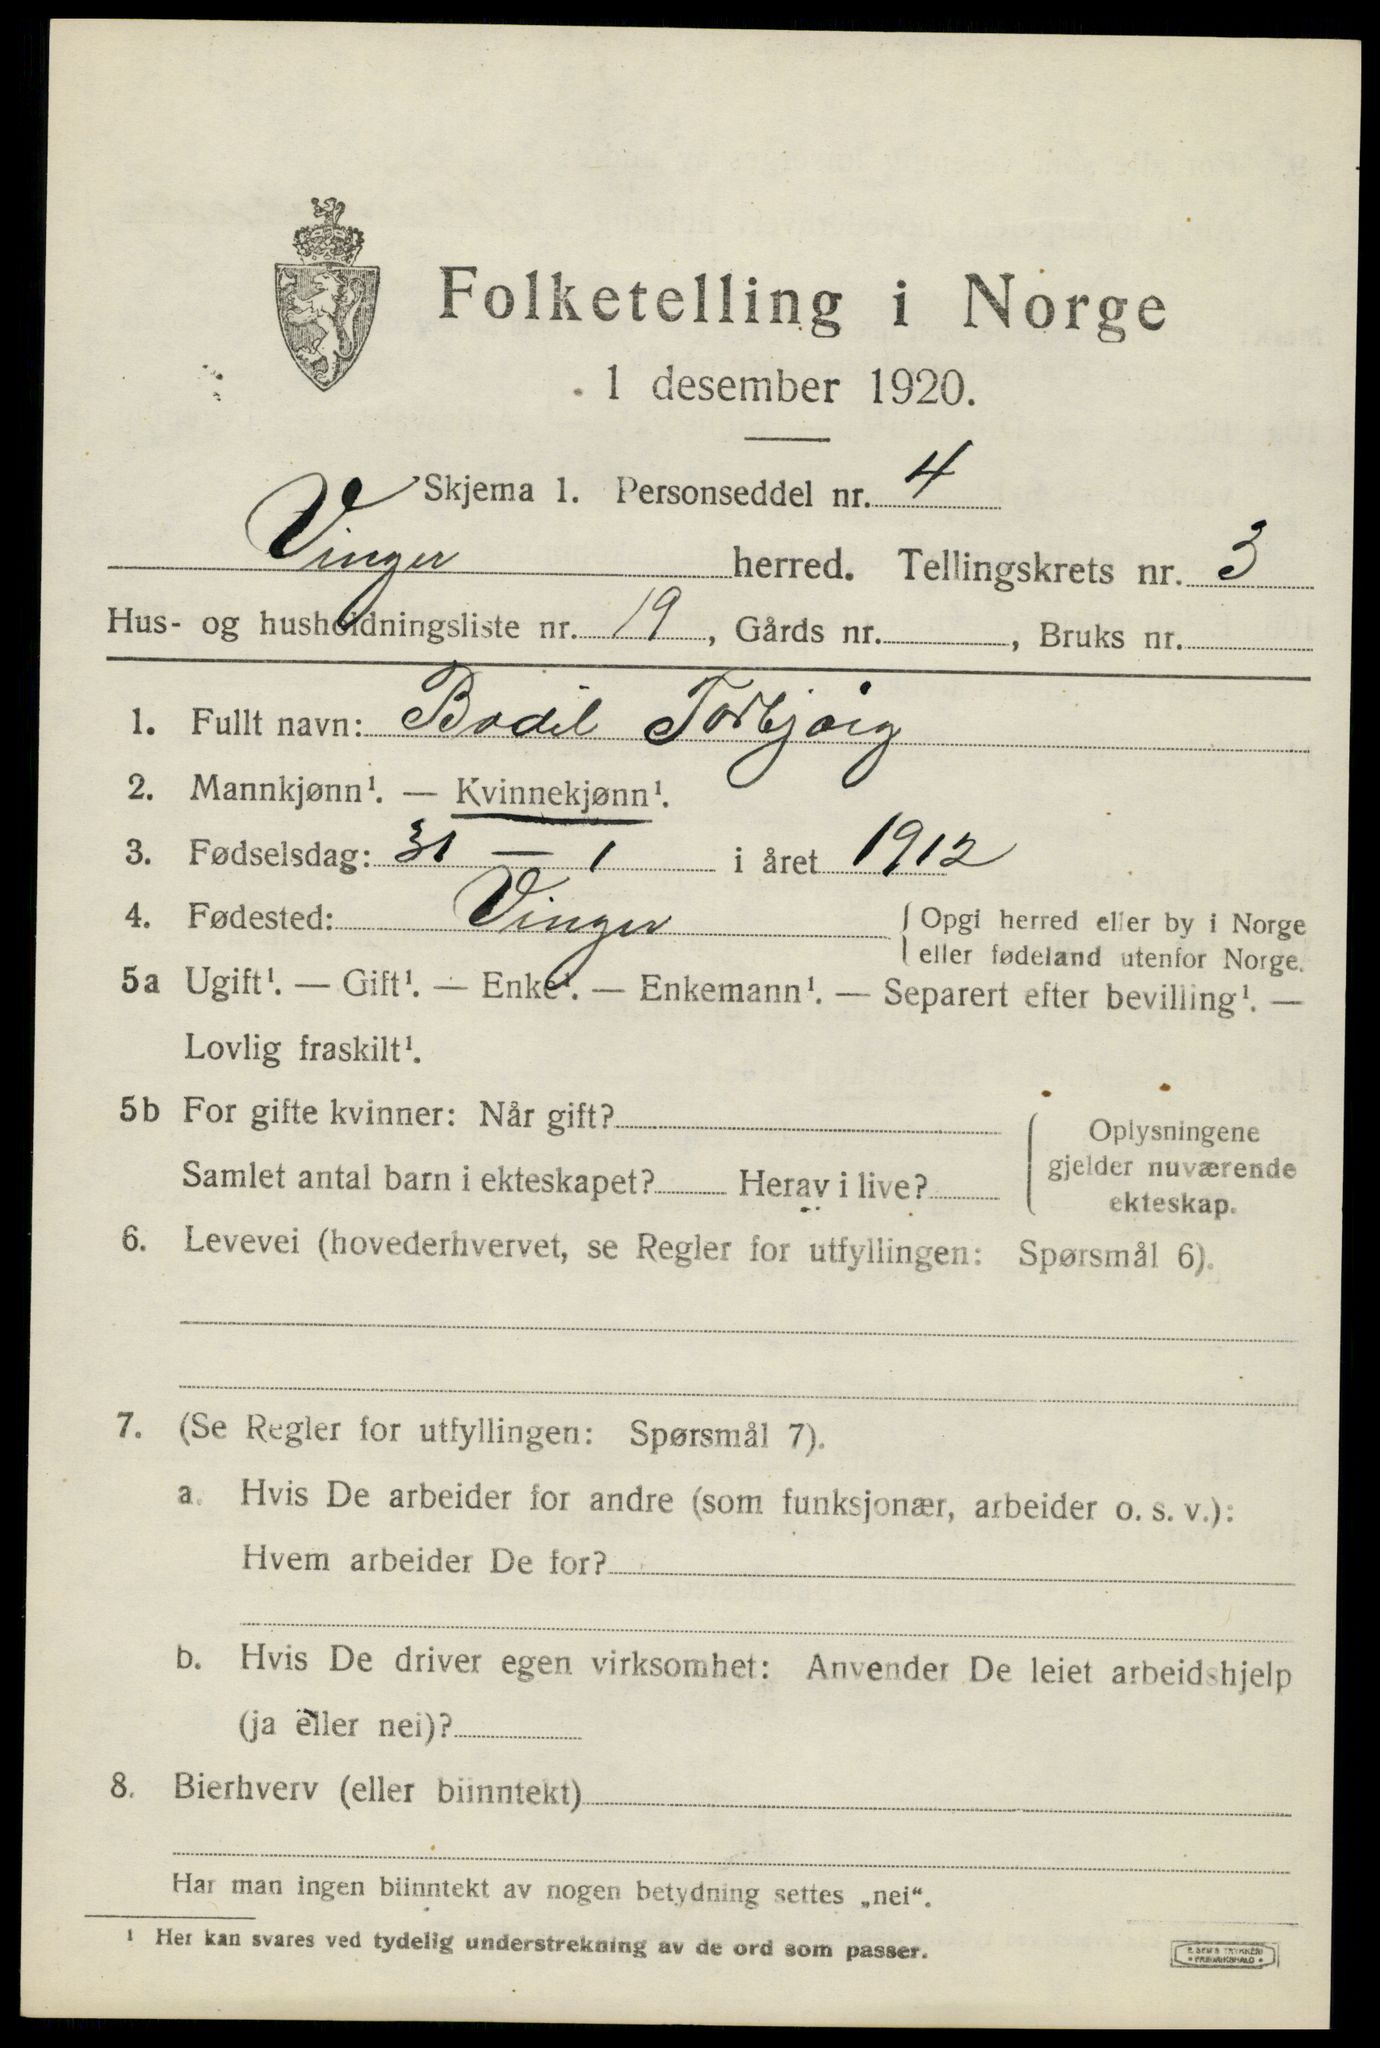 Folketelling i Norge
1 desember 1920.
Skjema 1. Personseddel nr. 4
Vinger herred. Tellingskrets nr. 3
Hus- og husholdningsliste nr. 19, Gårds nr. , Bruks nr.
1. Fullt navn: Bodil Torbjørg
2. Mannkjønn¹. — Kvinnekjønn¹.
3. Fødselsdag: 31 — 1 i året 1912
4. Fødested: Vinger { Opgi herred eller by i Norge
eller fødeland utenfor Norge.
5a Ugift¹. — Gift¹. — Enke¹. — Enkemann¹. — Separert efter bevilling¹. —
Lovlig fraskilt¹.
5b For gifte kvinner: Når gift?
Samlet antal barn i ekteskapet? Herav i live?
Oplysningene
gjelder nuværende
ekteskap.
6. Levevei (hovederhvervet, se Regler for utfyllingen: Spørsmål 6).
7. (Se Regler for utfyllingen: Spørsmål 7).
a. Hvis De arbeider for andre (som funksjonær, arbeider o. s. v.):
Hvem arbeider De for?
b. Hvis De driver egen virksomhet: Anvender De leiet arbeidshjelp
(ja eller nei)?
8. Bierhverv (eller biinntekt)
Har man ingen biinntekt av nogen betydning settes „nei“.
¹ Her kan svares ved tydelig understrekning av de ord som passer.
E. SEM'S TRYKKERI
FREDRIKSHALD